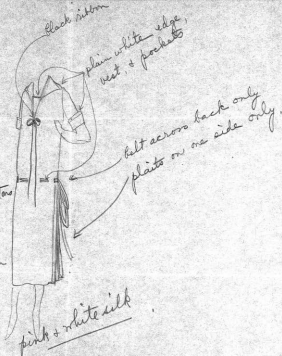 black ribbon
plain white edge,
vest, & pockets
belt across back only
plaits on one side only.
pink & white silk